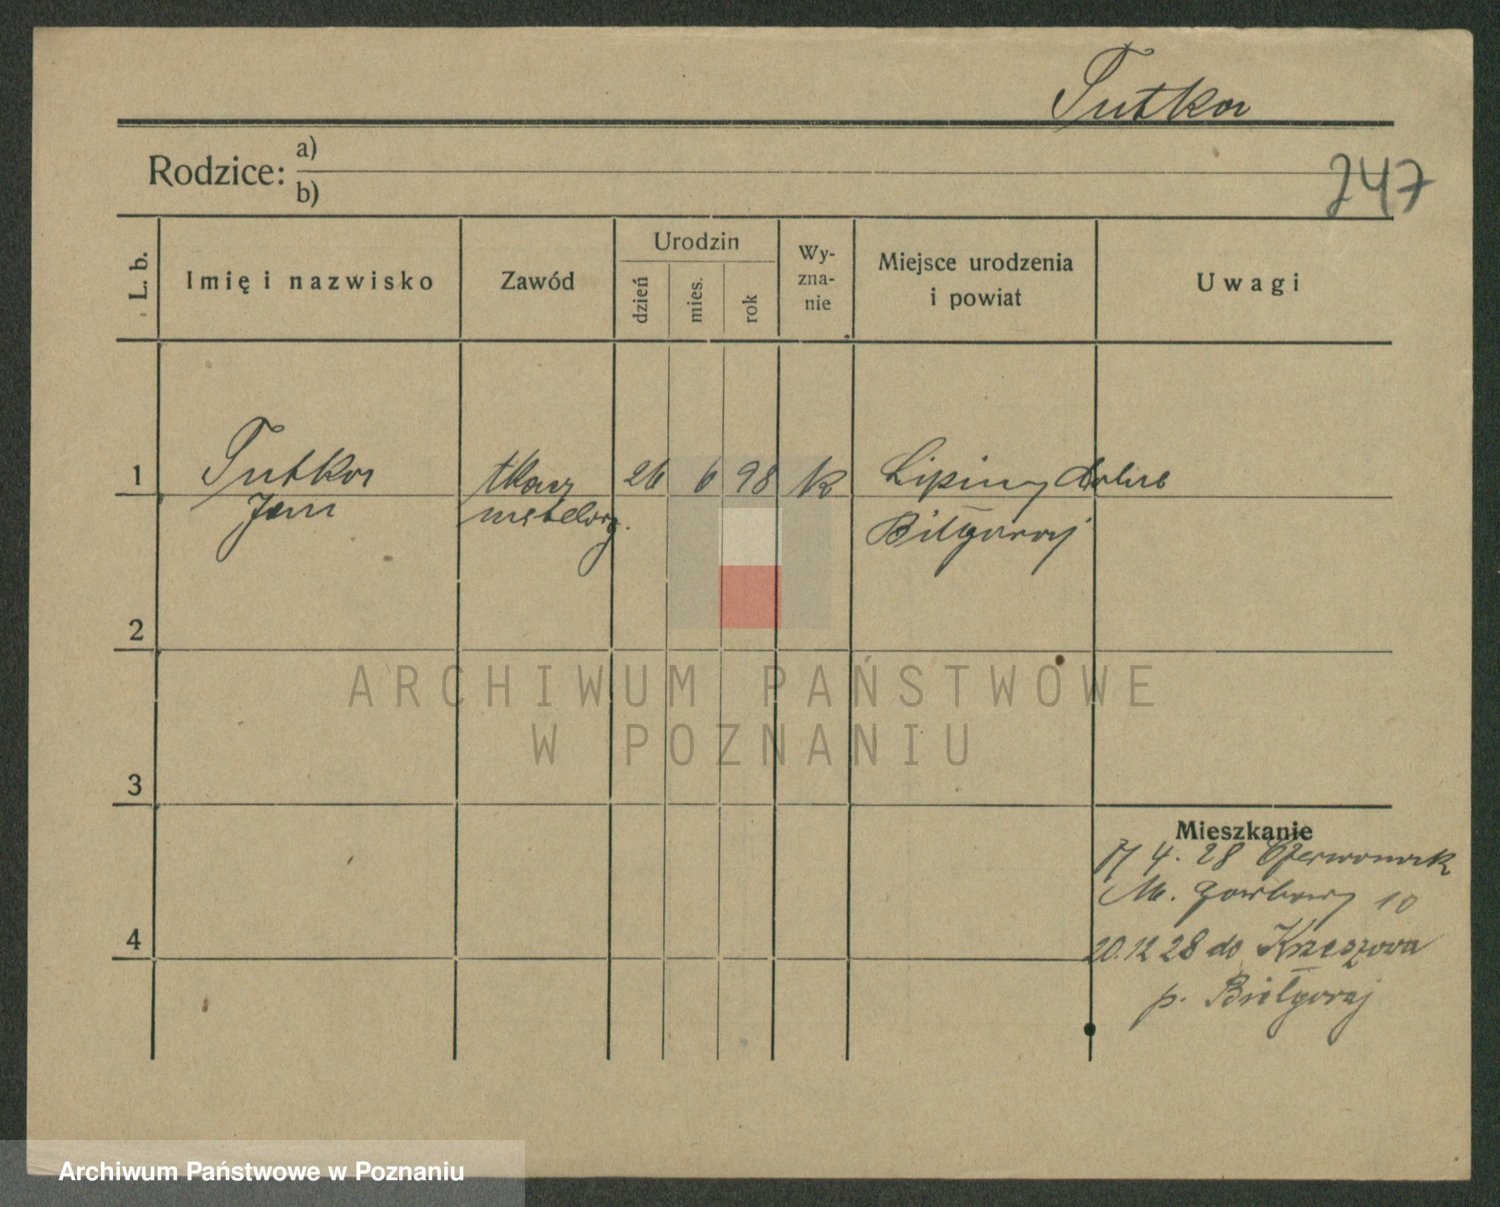 Tutka
Rodzice: a)
b)
247
L. b.
Imię i nazwisko
Zawód
Urodzin
dzień
mies.
rok
Wy-
zna-
nie
Miejsce urodzenia
i powiat
Uwagi
1
Tutka
Jan
tkacz
26 6 98 k
Lipiny dolne
Biłgoraj
2
ARCHIWUM PAŃSTWOWE
W POZNANIU
3
4
Mieszkanie
4. 28 Czerwonak
M. Garbary 10
20.12 28 do Krzeszowa
p. Biłgoraj
Archiwum Państwowe w Poznaniu